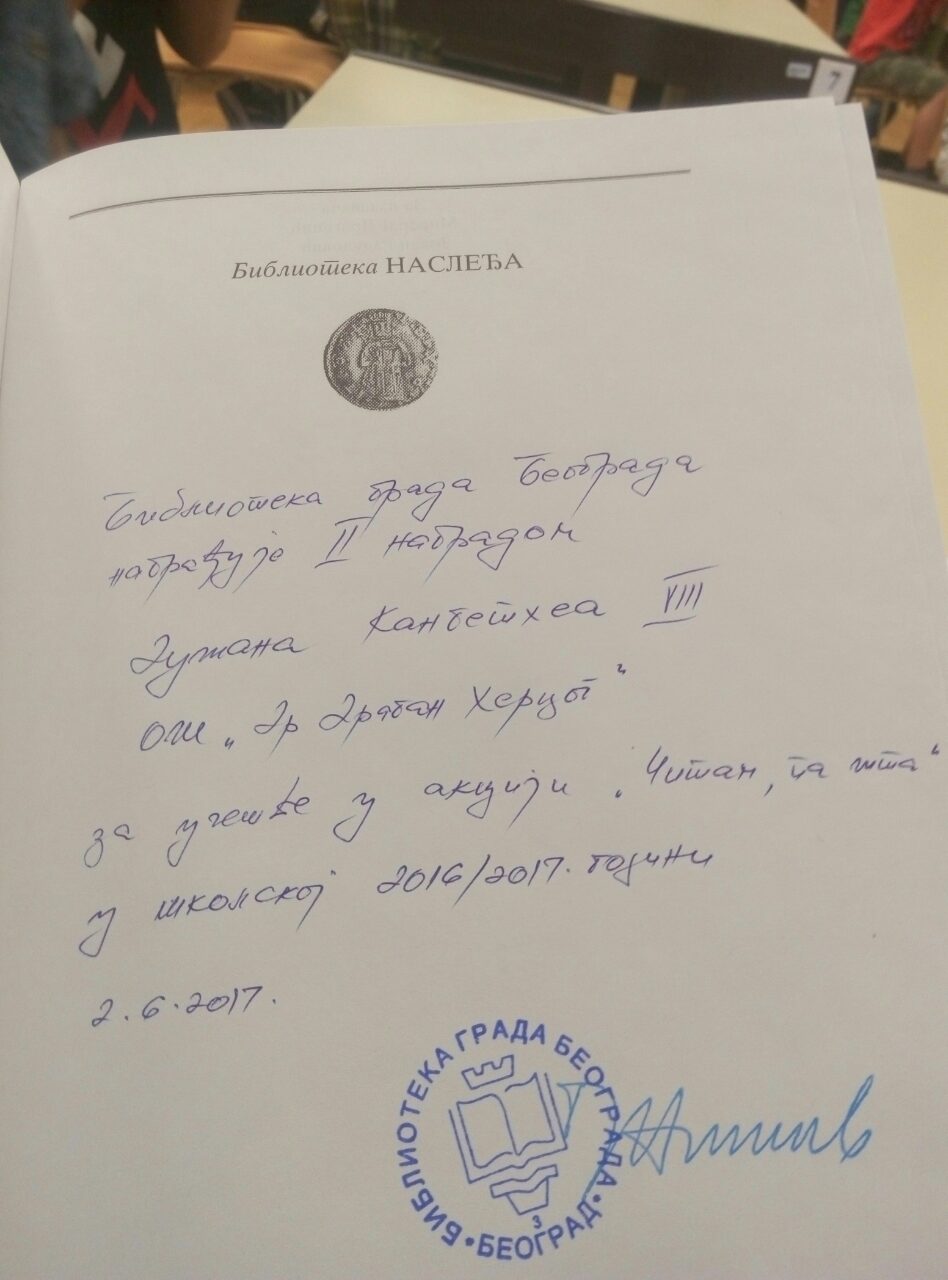 Библиотека НАСЛЕЂА
Библиотека града Београда
награђује II наградом
Душана Канбетхеа VIII
ОШ „Др Драган Херцог"
за учешће у акцији „Читам, па шта"
у школској 2016/2017. години
2.6.2017.
•БИБЛИОТЕКА ГРАДА БЕОГРАДА•
БЕОГРАД
3
7